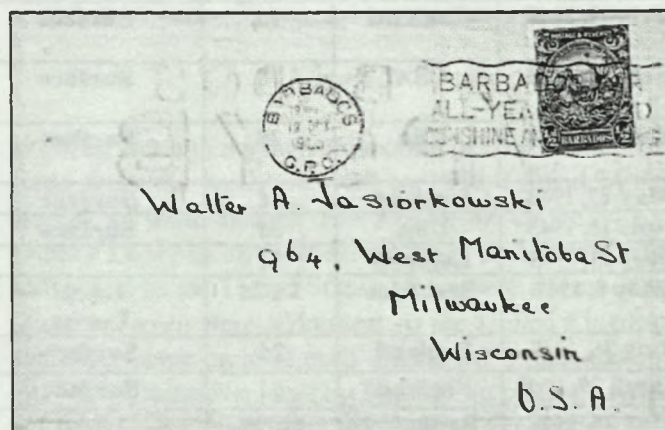 BARBADOS
G.P.O.
BARBAD
ALL-YEA
SUNSHINE AN
POSTAGE & REVENUE
BARBADOS
Walter A. Jasiorkowski
964, West Manitoba St
Milwaukee
Wisconsin
U.S.A.